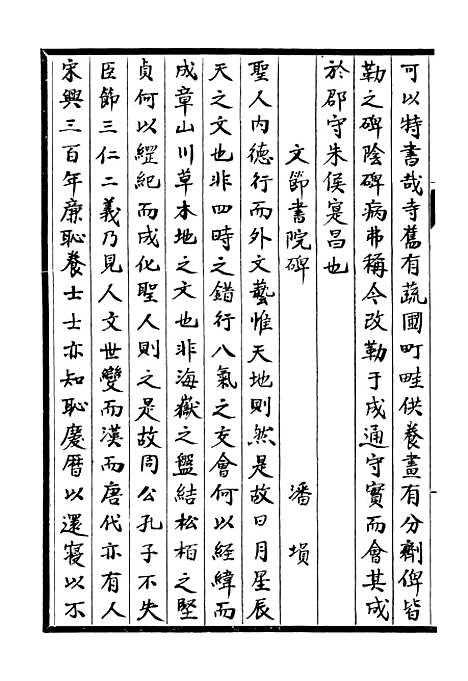 可以特書哉寺舊有蔬園町畦供養盡有分劑俾皆
勒之碑陰碑病弗稱今改勒于成通守實而會其成
於郡守朱侯寔昌也
文節書院碑 潘塤
聖人内德行而外文藝惟天地則然是故日月星辰
天之文也非四時之錯行八氣之交會何以經緯而
成章山川草本地之文也非海嶽之盤結松栢之堅
貞何以縰紀而成化聖人則之是故周公孔子不失
臣節三仁二義乃見人文世變而漢而唐代亦有人
宋興三百年廉恥養士士亦知恥慶曆以還寖以不